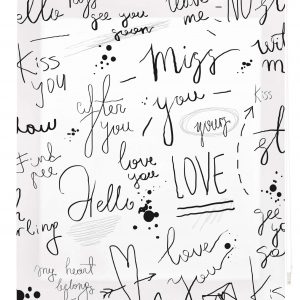 Hello
see you
soon
me
Kiss
you
- Miss -
- you -
with
m
after
you
yours
Kiss
Find
me
love
you
Hello
LOVE
see
you
so
love
you
my heart
belongs